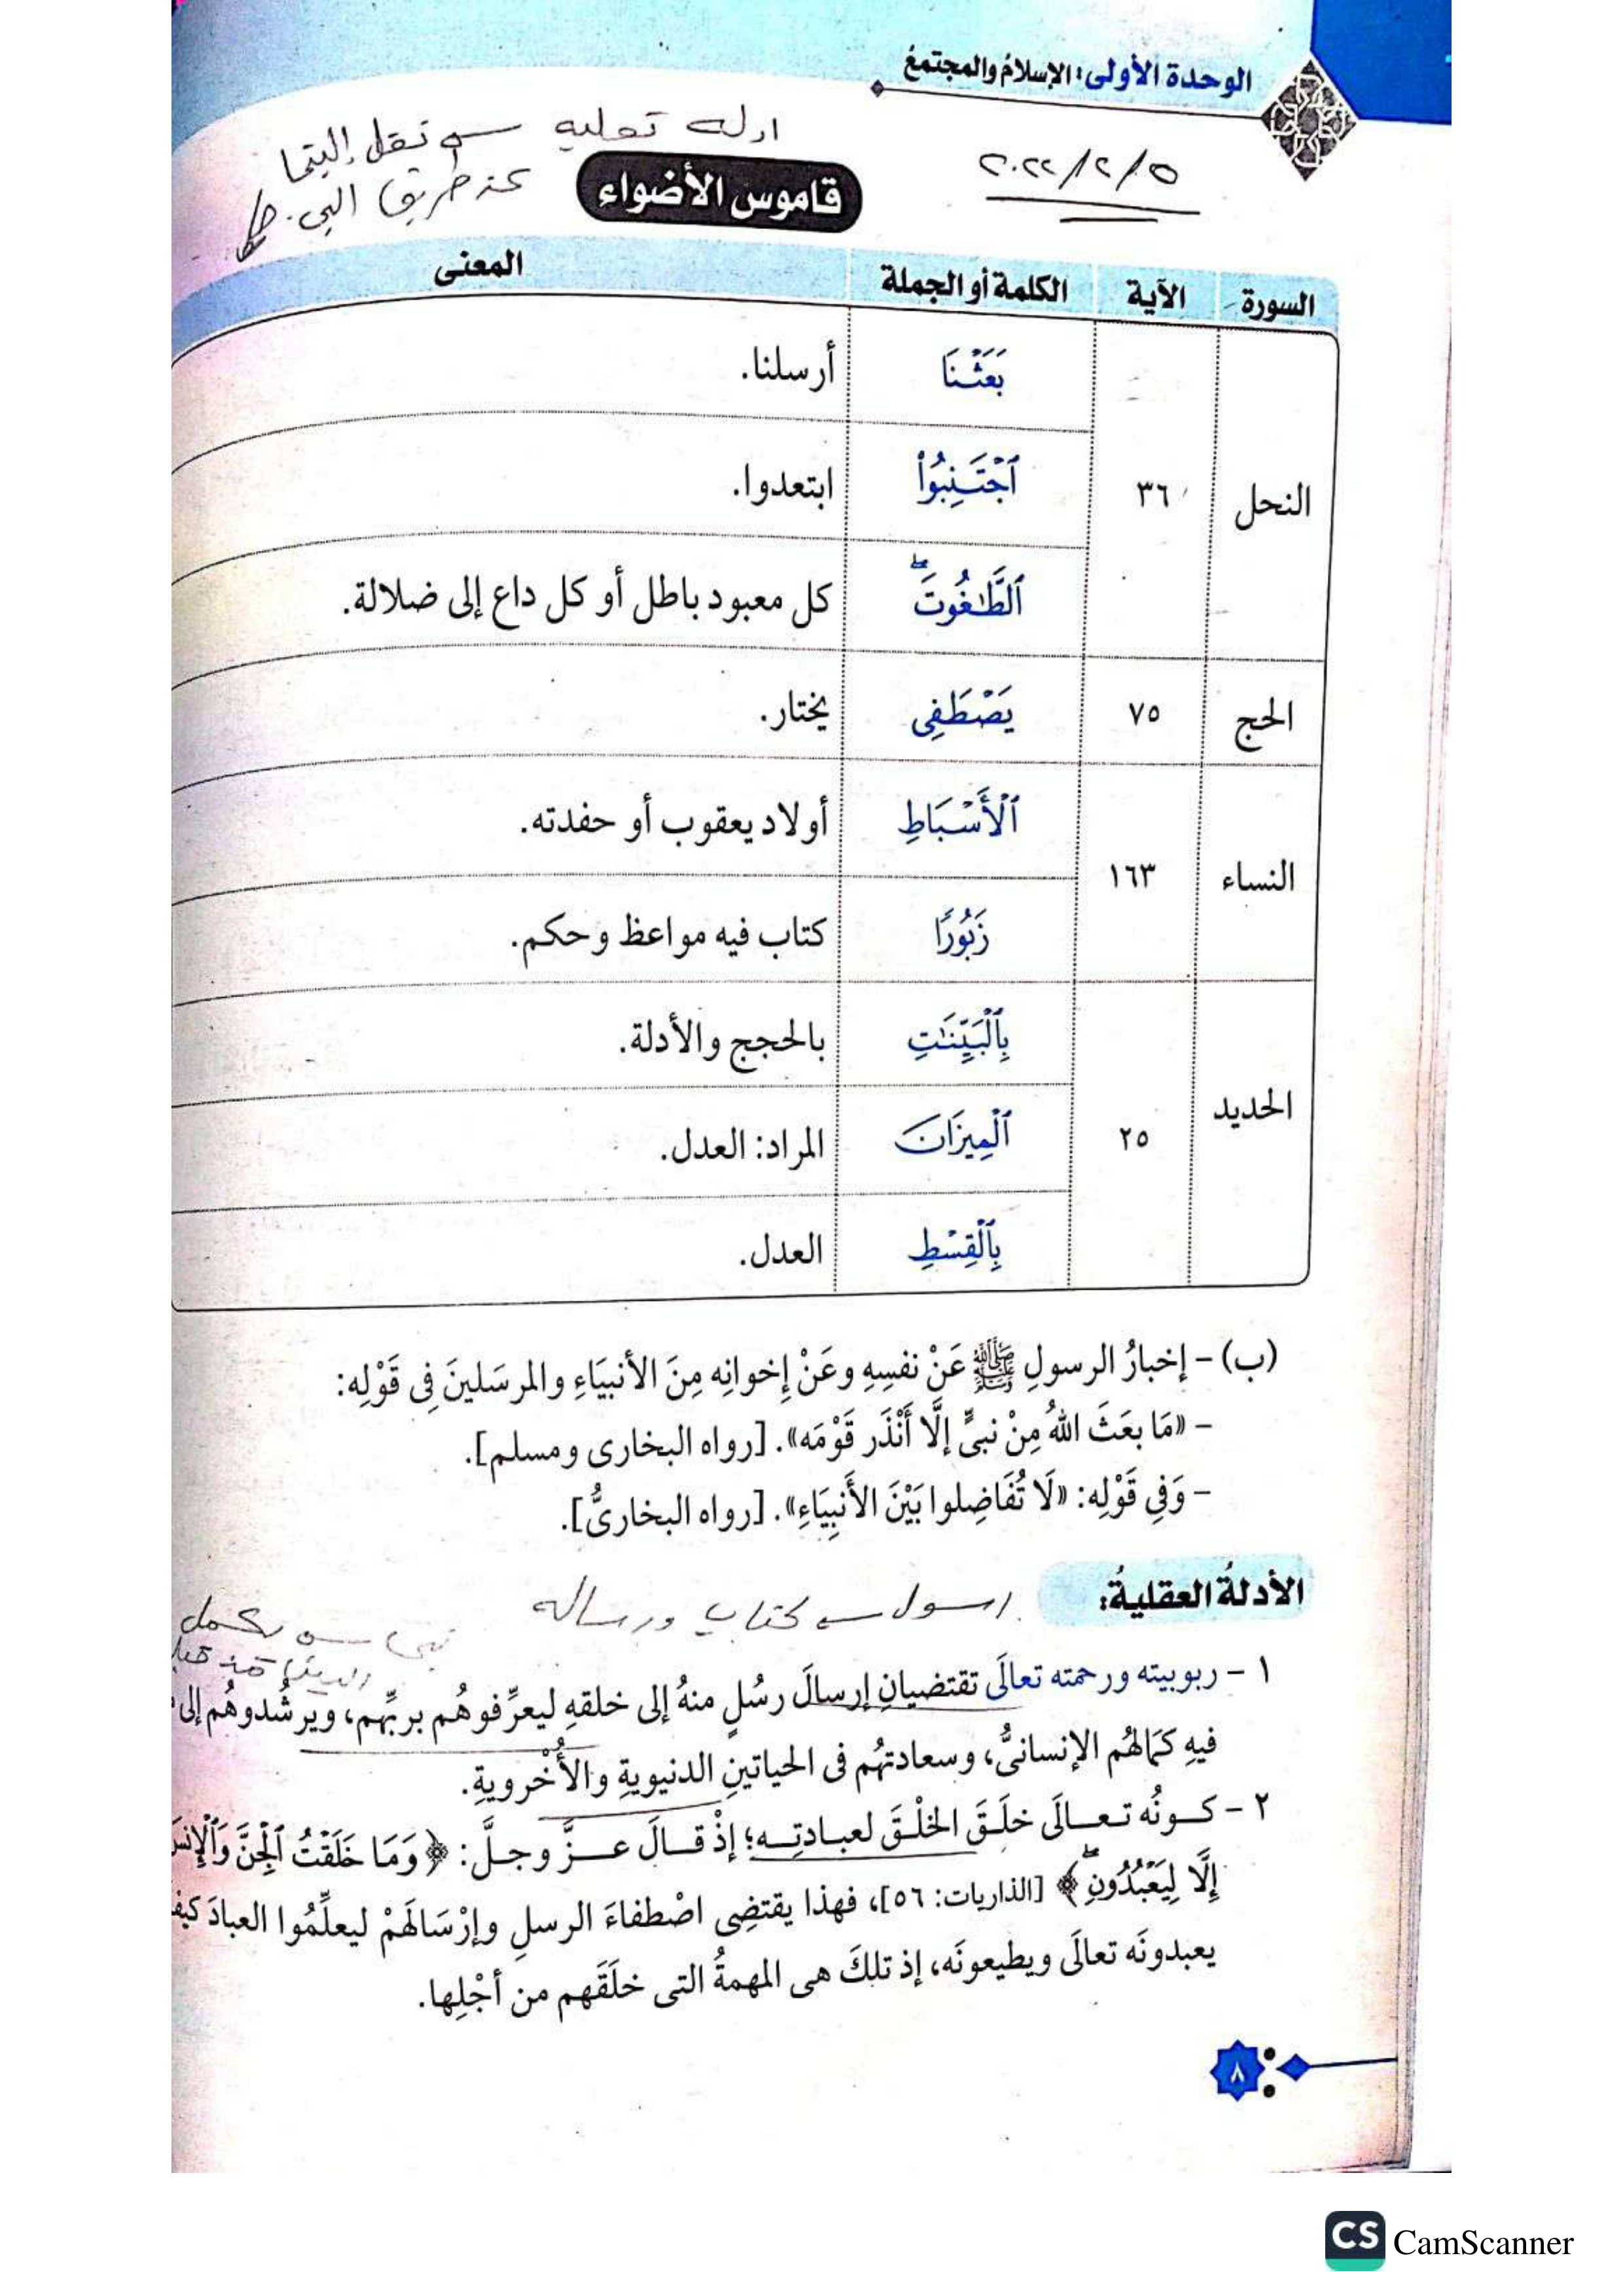 الوحدة الأولى: الإسلام والمجتمعُ
ادله نقليه
نقل إلينا
عن طريق النبي
٢٠٢٢/٢/٥
قاموس الأضواء
السورة الآية الكلمة أو الجملة المعنى
النحل ٣٦ بَعَثْنَا أرسلنا.
ٱجْتَنِبُوا۟ ابتعدوا.
ٱلطَّٰغُوتَۖ كل معبود باطل أو كل داع إلى ضلالة.
الحج ٧٥ يَصْطَفِى يختار.
النساء ١٦٣ ٱلْأَسْبَاطِ أولاد يعقوب أو حفدته.
زَبُورًا كتاب فيه مواعظ وحكم.
الحديد ٢٥ بِٱلْبَيِّنَٰتِ بالحجج والأدلة.
ٱلْمِيزَانَ المراد: العدل.
بِٱلْقِسْطِ العدل.
(ب) - إخبارُ الرسولِ ﷺ عَنْ نفسِهِ وعَنْ إخوانِه مِنَ الأنبيَاءِ والمرسَلينَ فِى قَوْلِه:
- «مَا بعَثَ اللهُ مِنْ نبىٍّ إلَّا أَنْذَر قَوْمَه». [رواه البخارى ومسلم].
- وَفِى قَوْلِه: «لَا تُفَاضِلوا بَيْنَ الأَنبِيَاءِ». [رواه البخارىُّ].
الأدلةُ العقليةُ:
رسول كتاب ورساله
نبى يكمل
١ - ربوبيته ورحمته تعالَى تقتضيانِ إرسالَ رسُلٍ منهُ إلى خلقهِ ليعرِّفوهُم بربِّهم، ويرشُدوهُم إلى
فيهِ كمَالهُم الإنسانىُّ، وسعادتهُم فى الحياتينِ الدنيويةِ والأُخْرويةِ.
٢ - كونُه تعالَى خلَقَ الخلْقَ لعبادتِه؛ إذْ قالَ عزَّ وجلَّ: ﴿وَمَا خَلَقْتُ ٱلْجِنَّ وَٱلْإِنسَ
إِلَّا لِيَعْبُدُونِ﴾ [الذاريات: ٥٦]، فهذا يقتضِى اصْطفاءَ الرسلِ وإرْسَالَهَمْ ليعلِّمُوا العبادَ كيف
يعبدونَه تعالَى ويطيعونَه، إذ تلكَ هى المهمةُ التى خلَقَهم من أجْلِها.
٨
CS CamScanner